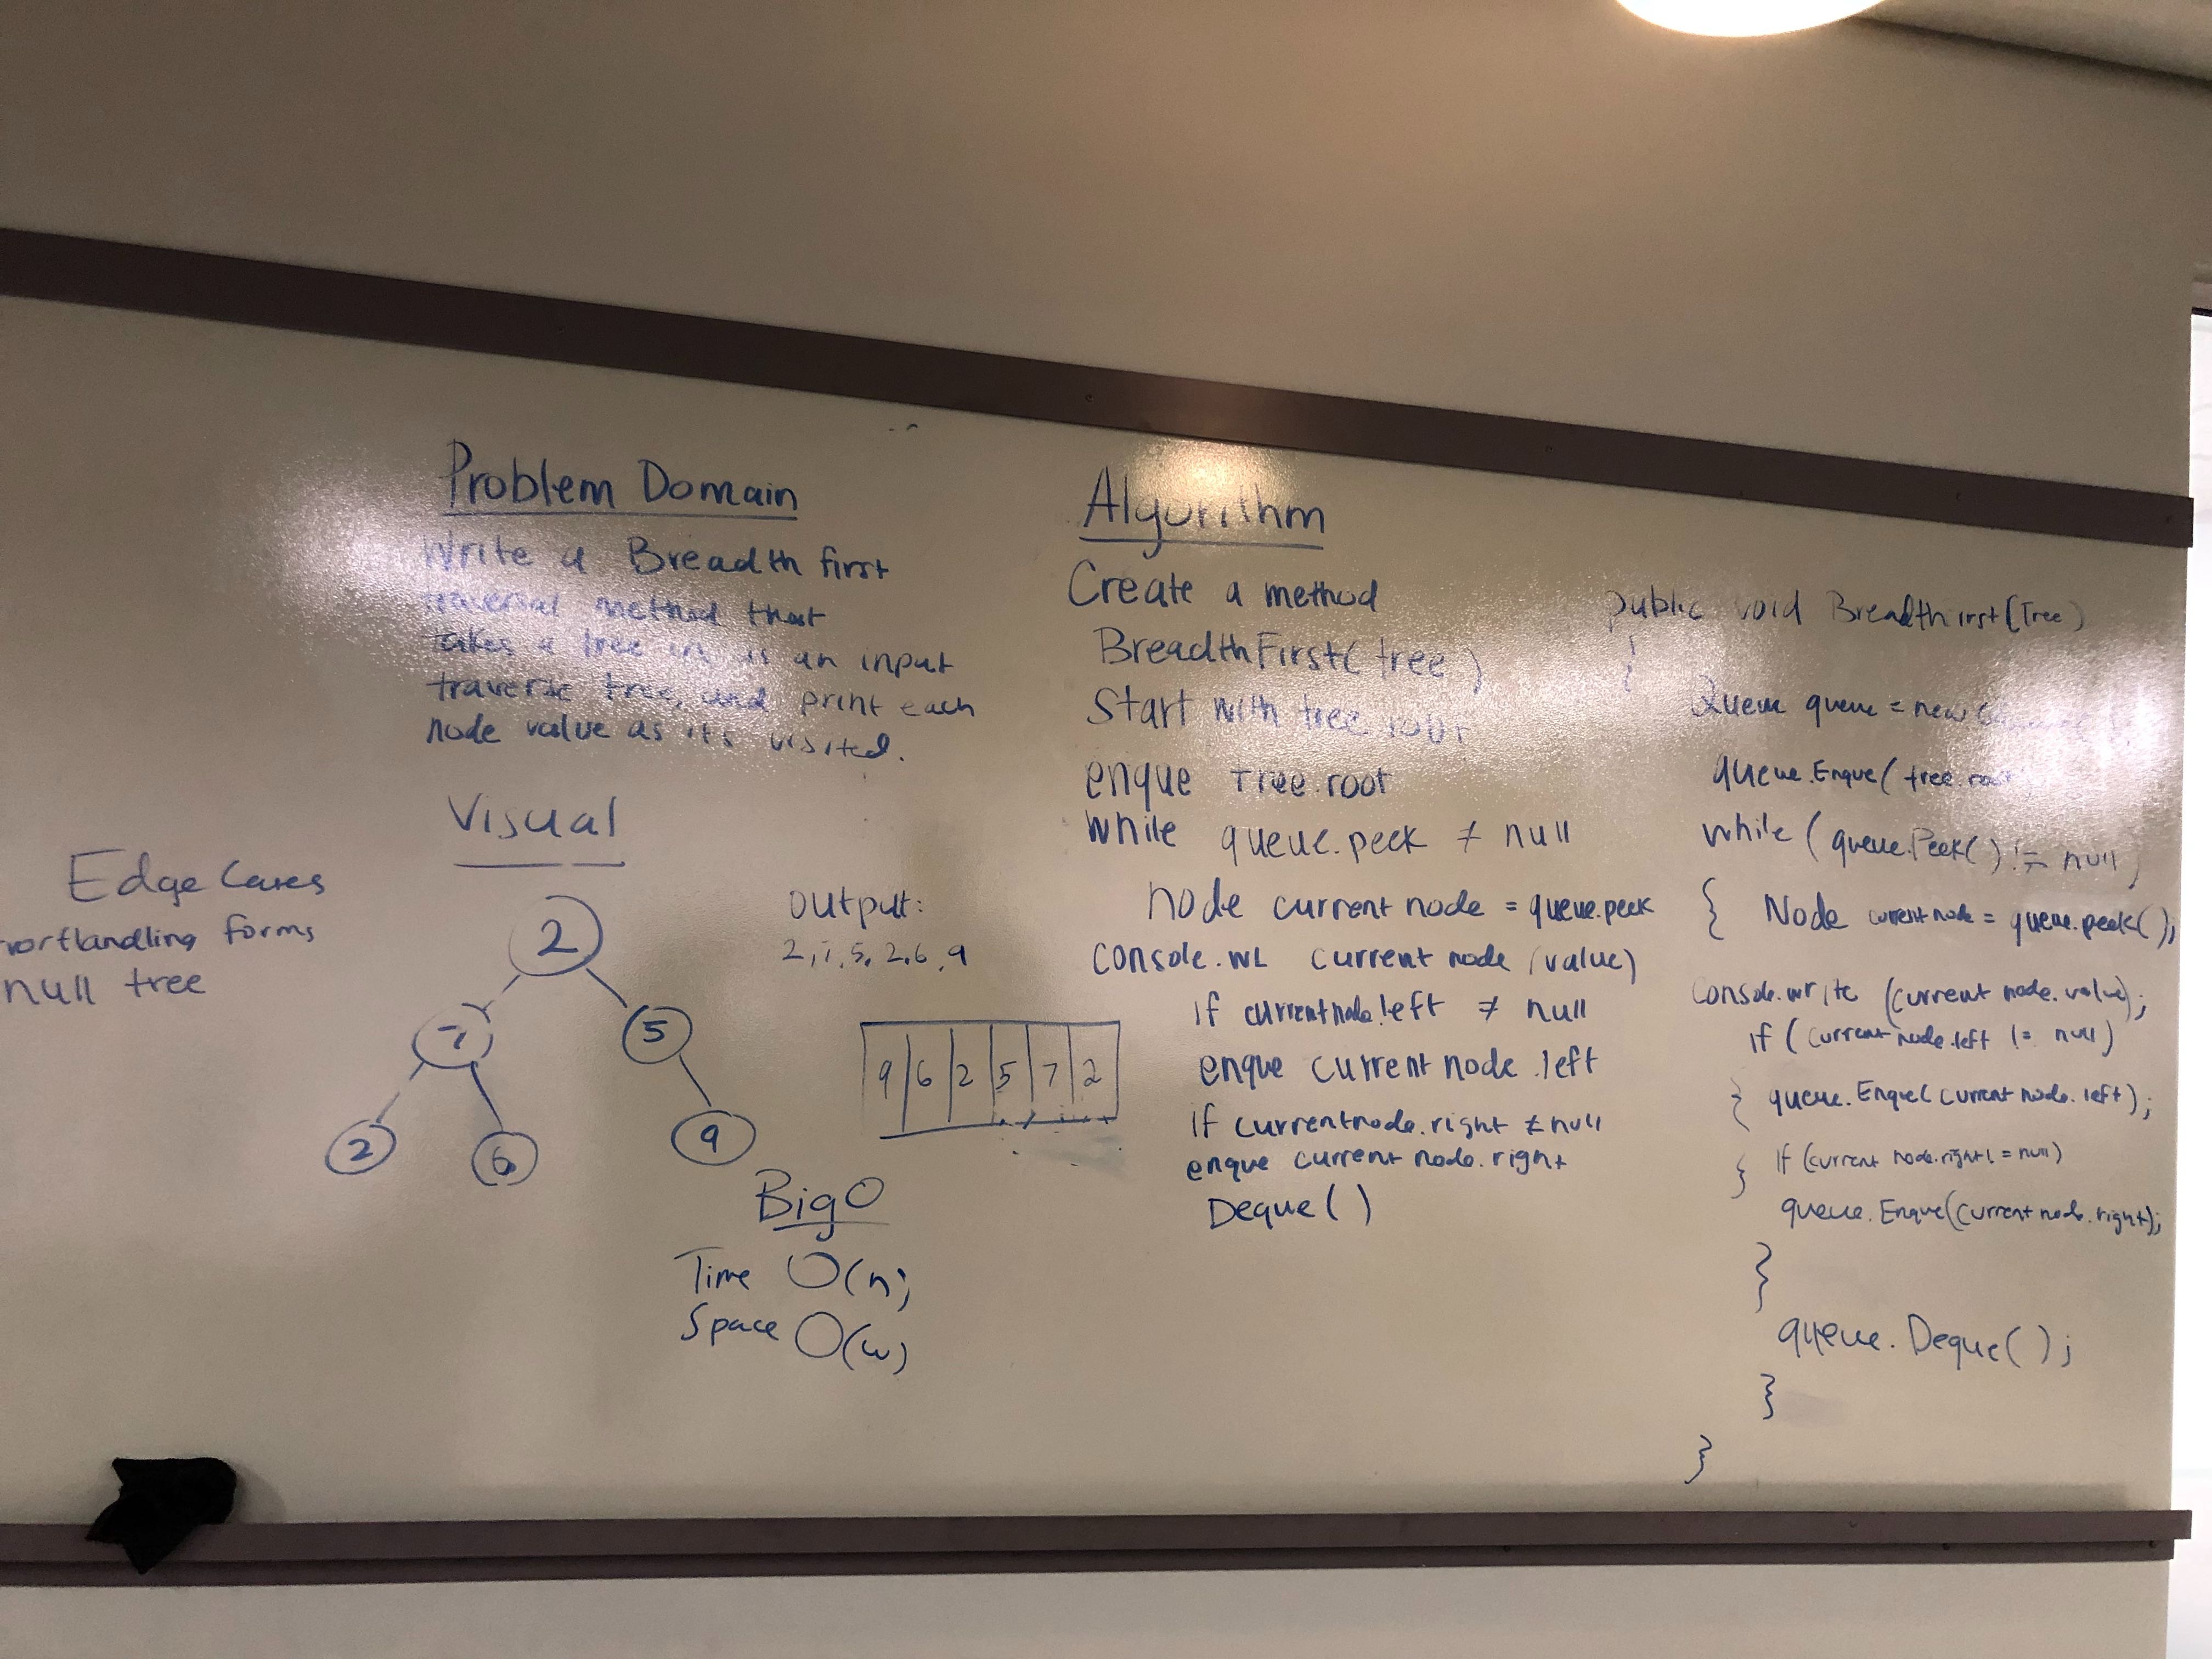 Problem Domain
Write a Breadth first
traversal method that
takes a tree in as an input
traverse tree, and print each
node value as it's visited.
Visual
Edge Cases
null tree
2
7
5
2
6
9
output:
2, 7, 5, 2, 6, 9
9 6 2 5 7 2
Big O
Time O(n)
Space O(w)
Algorithm
Create a method
BreadthFirst(tree)
Start with tree root
enque Tree.root
while queue.peek ≠ null
node current node = queue.peek
console.WL current node (value)
if currentnode.left ≠ null
enque current node.left
if currentnode.right ≠ null
enque current node.right
Deque()
public void Breadthfirst(Tree)
{
queue = new
queue.Enque(tree.root
while (queue.Peek() != null)
{ Node current node = queue.peek();
Console.write (current node.value);
if (current node.left != null)
{ queue.Enque(current node.left);
} if (current node.right != null)
queue.Enque(current node.right);
}
queue.Deque();
}
}